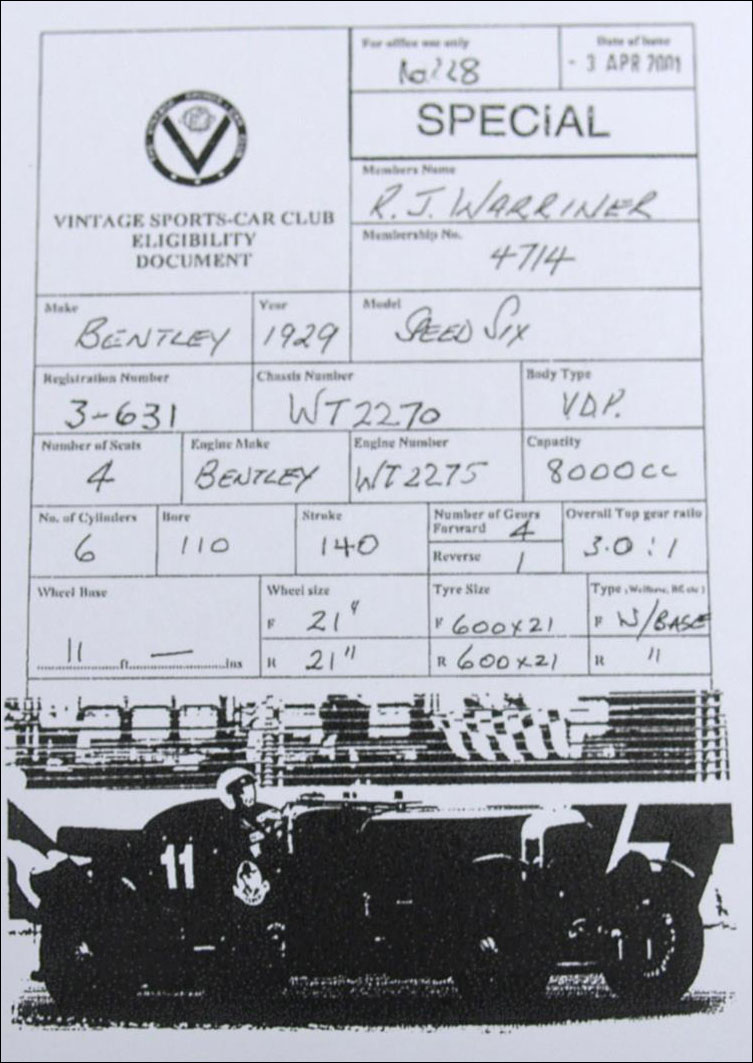 For office use only
Date of Issue
- 3 APR 2001
SPECiAL
VINTAGE SPORTS-CAR CLUB
ELIGIBILITY
DOCUMENT
Members Name
R.J. WARRINER
Membership No.
4714
Make
BENTLEY
Year
1929
Model
SPEED SIX
Registration Number
3-631
Chassis Number
WT2270
Body Type
V.D.P.
Number of Seats
4
Engine Make
BENTLEY
Engine Number
WT2275
Capacity
8000cc
No. of Cylinders
6
Bore
110
Stroke
140
Number of Gears
Forward 4
Reverse 1
Overall Top gear ratio
3.0 : 1
Wheel Base
11 ft. — ins
Wheel size
F 21"
R 21"
Tyre Size
F 600x21
R 600x21
Type
F W/BASE
R "
11